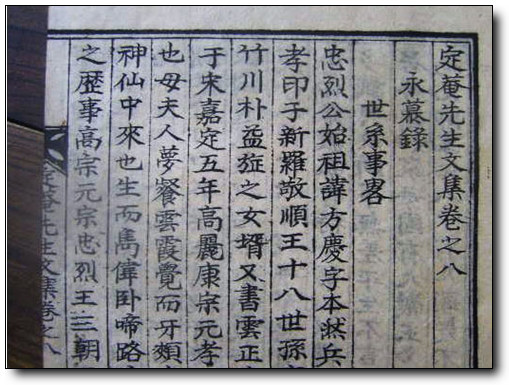 定菴先生文集卷之八
永慕錄
世系事畧
忠烈公始祖諱方慶字本然兵
孝印子新羅敬順王十八世孫
竹川朴益旌之女壻又書雲正
于宋嘉定五年高麗康宗元孝
也母夫人夢餐雲霞覺而牙頰
神仙中來也生而偉卧啼路
之歷事高宗元宗忠烈王三朝
定菴先生文集卷之八